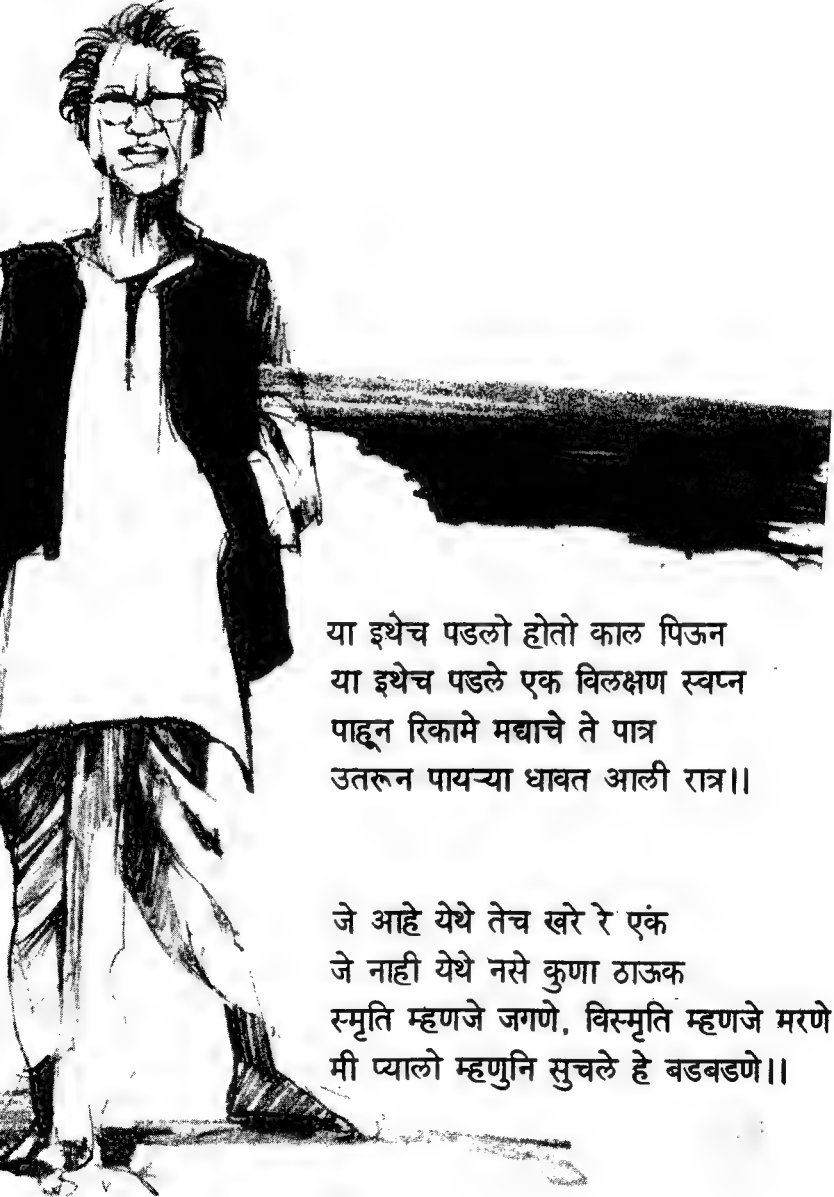 या इथेच पडलो होतो काल पिऊन
या इथेच पडले एक विलक्षण स्वप्न
पाहून रिकामे मद्याचे ते पात्र
उतरून पायऱ्या धावत आली रात्र।।
जे आहे येथे तेच खरे रे एक
जे नाही येथे नसे कुणा ठाऊक
स्मृति म्हणजे जगणे, विस्मृति म्हणजे मरणे
मी प्यालो म्हणुनि सुचले हे बडबडणे।।